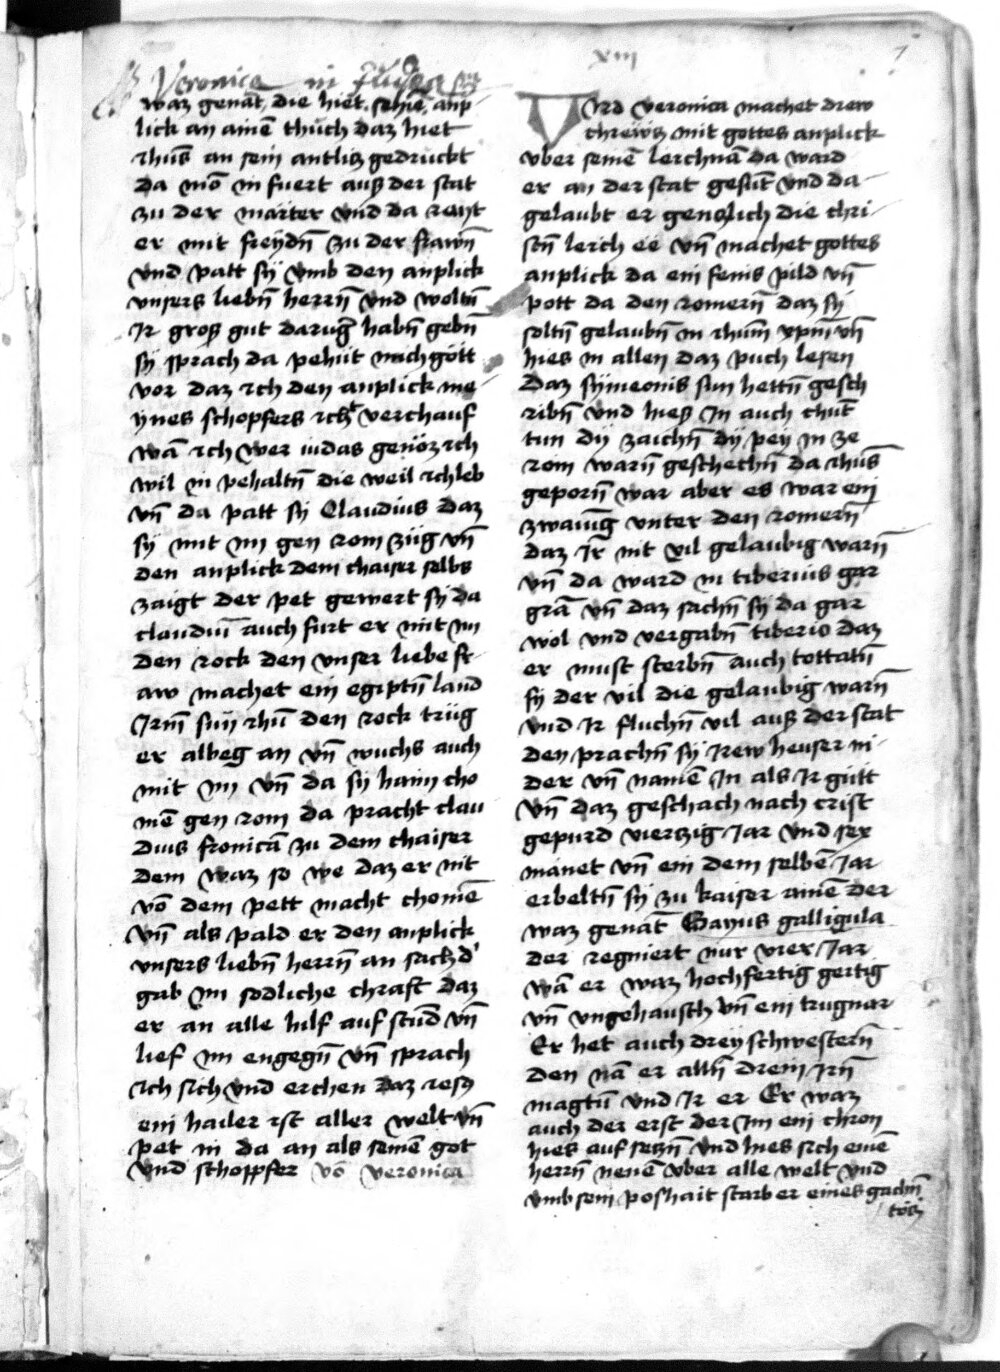 xiii
7
Veronica in
waz genāt die hiet schīe anp-
lick an ainē thuch daz hiet
Jhūs an sein antlitz gedruckt
da mō in fuert aus der stat
zu der marter vnd da reyt
er mit freydn̄ zu der frawn̄
vnd patt sy vmb den anplick
vnsers liebn̄ herrn̄ vnd woltn̄
Jr gros gut darūb habn̄ gebn̄
sy sprach da pehut mich gott
vor daz ich den anplick me-
ynes schopfers icht verchauf
wā ich wer iudas genöz ich
wil in pehaltn̄ die weil ich leb
vn̄ da patt sy Claudius daz
sy mit im gen rom züg vn̄
den anplick dem chaiser selbs
zaigt der pet gewert sy da
claudiū auch furt er mit im
den rock den vnser liebe fr-
aw machet ein egiptn̄ land
Jrm̄ sun Jhū den rock trüg
er albeg an vn̄ wuchs auch
mit im vn̄ da sy haim cho
mē gen rom da pracht clau
dius fronicā zu dem chaiser
dem waz so we daz er nit
vō dem pett macht chomē
vn̄ als pald er den anplick
vnsers liebn̄ herrn̄ an sach d'
gab im sodliche chraft daz
er an alle hilf auf stūd vn̄
lief im engegn̄ vn̄ sprach
ich sich vnd erchen daz iesus
ein hailer ist aller welt vn̄
pet in da an als seinē got
vnd schoppfer vō veronica
Vnd veronica machet drew
chrewtz mit gottes anplick
vber seinē leichnā da ward
er an der stat gesūt vnd da-
gelaubt er genczlich die chri-
stn̄ leich ee vn̄ machet gottes
anplick da ein fenis pild vn̄
pott da den romern̄ daz sy
soltn̄ gelaubn̄ in Jhum̄ xpm̄ vn̄
hies in allen daz puch lesen
Daz symeonis sun hettn̄ gesch
ribn̄ vnd hies in auch chūt
tun dy zaichn̄ dy pey in ze
rom warn̄ geschechn̄ da Jhūs
geporn̄ war aber es war ein
zwaiūg vnter den romern̄
daz Jr nit vil gelaubig warn̄
vn̄ da ward in tiberius gar
grā vn̄ daz sachn̄ sy da gar
wol vnd vergabn̄ tiberio daz
er must sterbn̄ auch tottatn̄
sy der vil die gelaubig warn̄
vnd Jr fluchn̄ vil aus der stat
den prachn̄ sy irew heuser ni-
der vn̄ namē in als Jr gutt
vn̄ daz geschach nach crist
gepurd vierczig Jar vnd sex
manet vn̄ ein dem selbē Jar
erbeltn̄ sy zu kaiser ainē der
waz genāt Gayus galligula
der regniert nur vier Jar
wā er waz hochfertig gertig
vn̄ vngehausch vn̄ ein trugnar
Er het auch drey schwestern̄
den nā er alln̄ drein Jrn̄
magtū vnd Jr er Er waz
auch der erst der im ein chron
hies auf setzn̄ vnd hies sich einē
herrn̄ nenē vber alle welt vnd
vmb sein poshait starb er eines gachn̄
totz